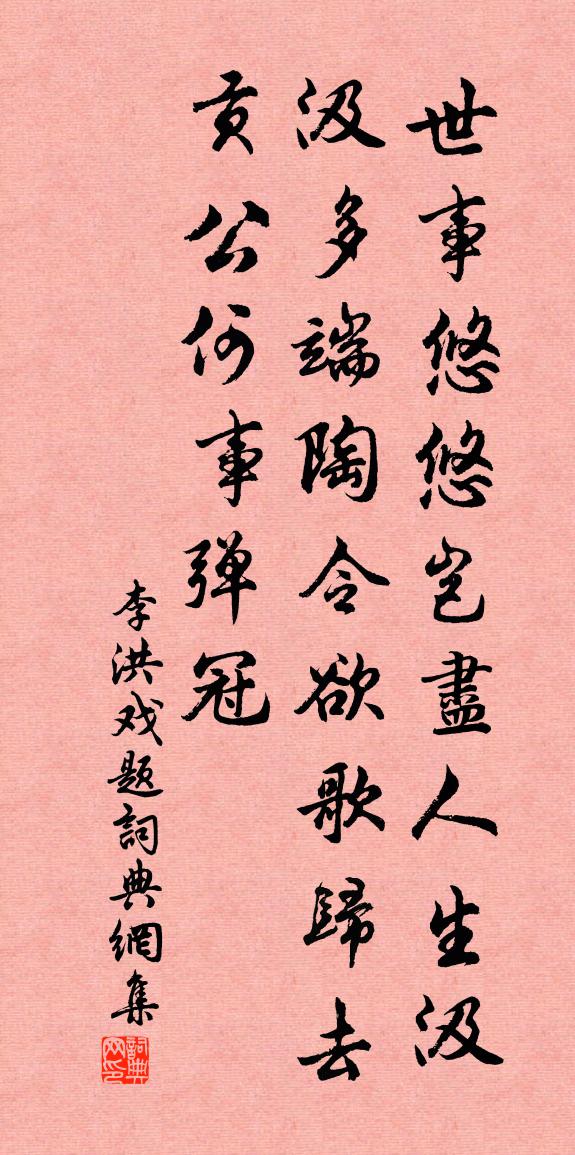 世事悠悠岂盡人生汲
汲多端陶令欲歌歸去
贡公何事弹冠
李洪戏题詞典網集
詞典网印